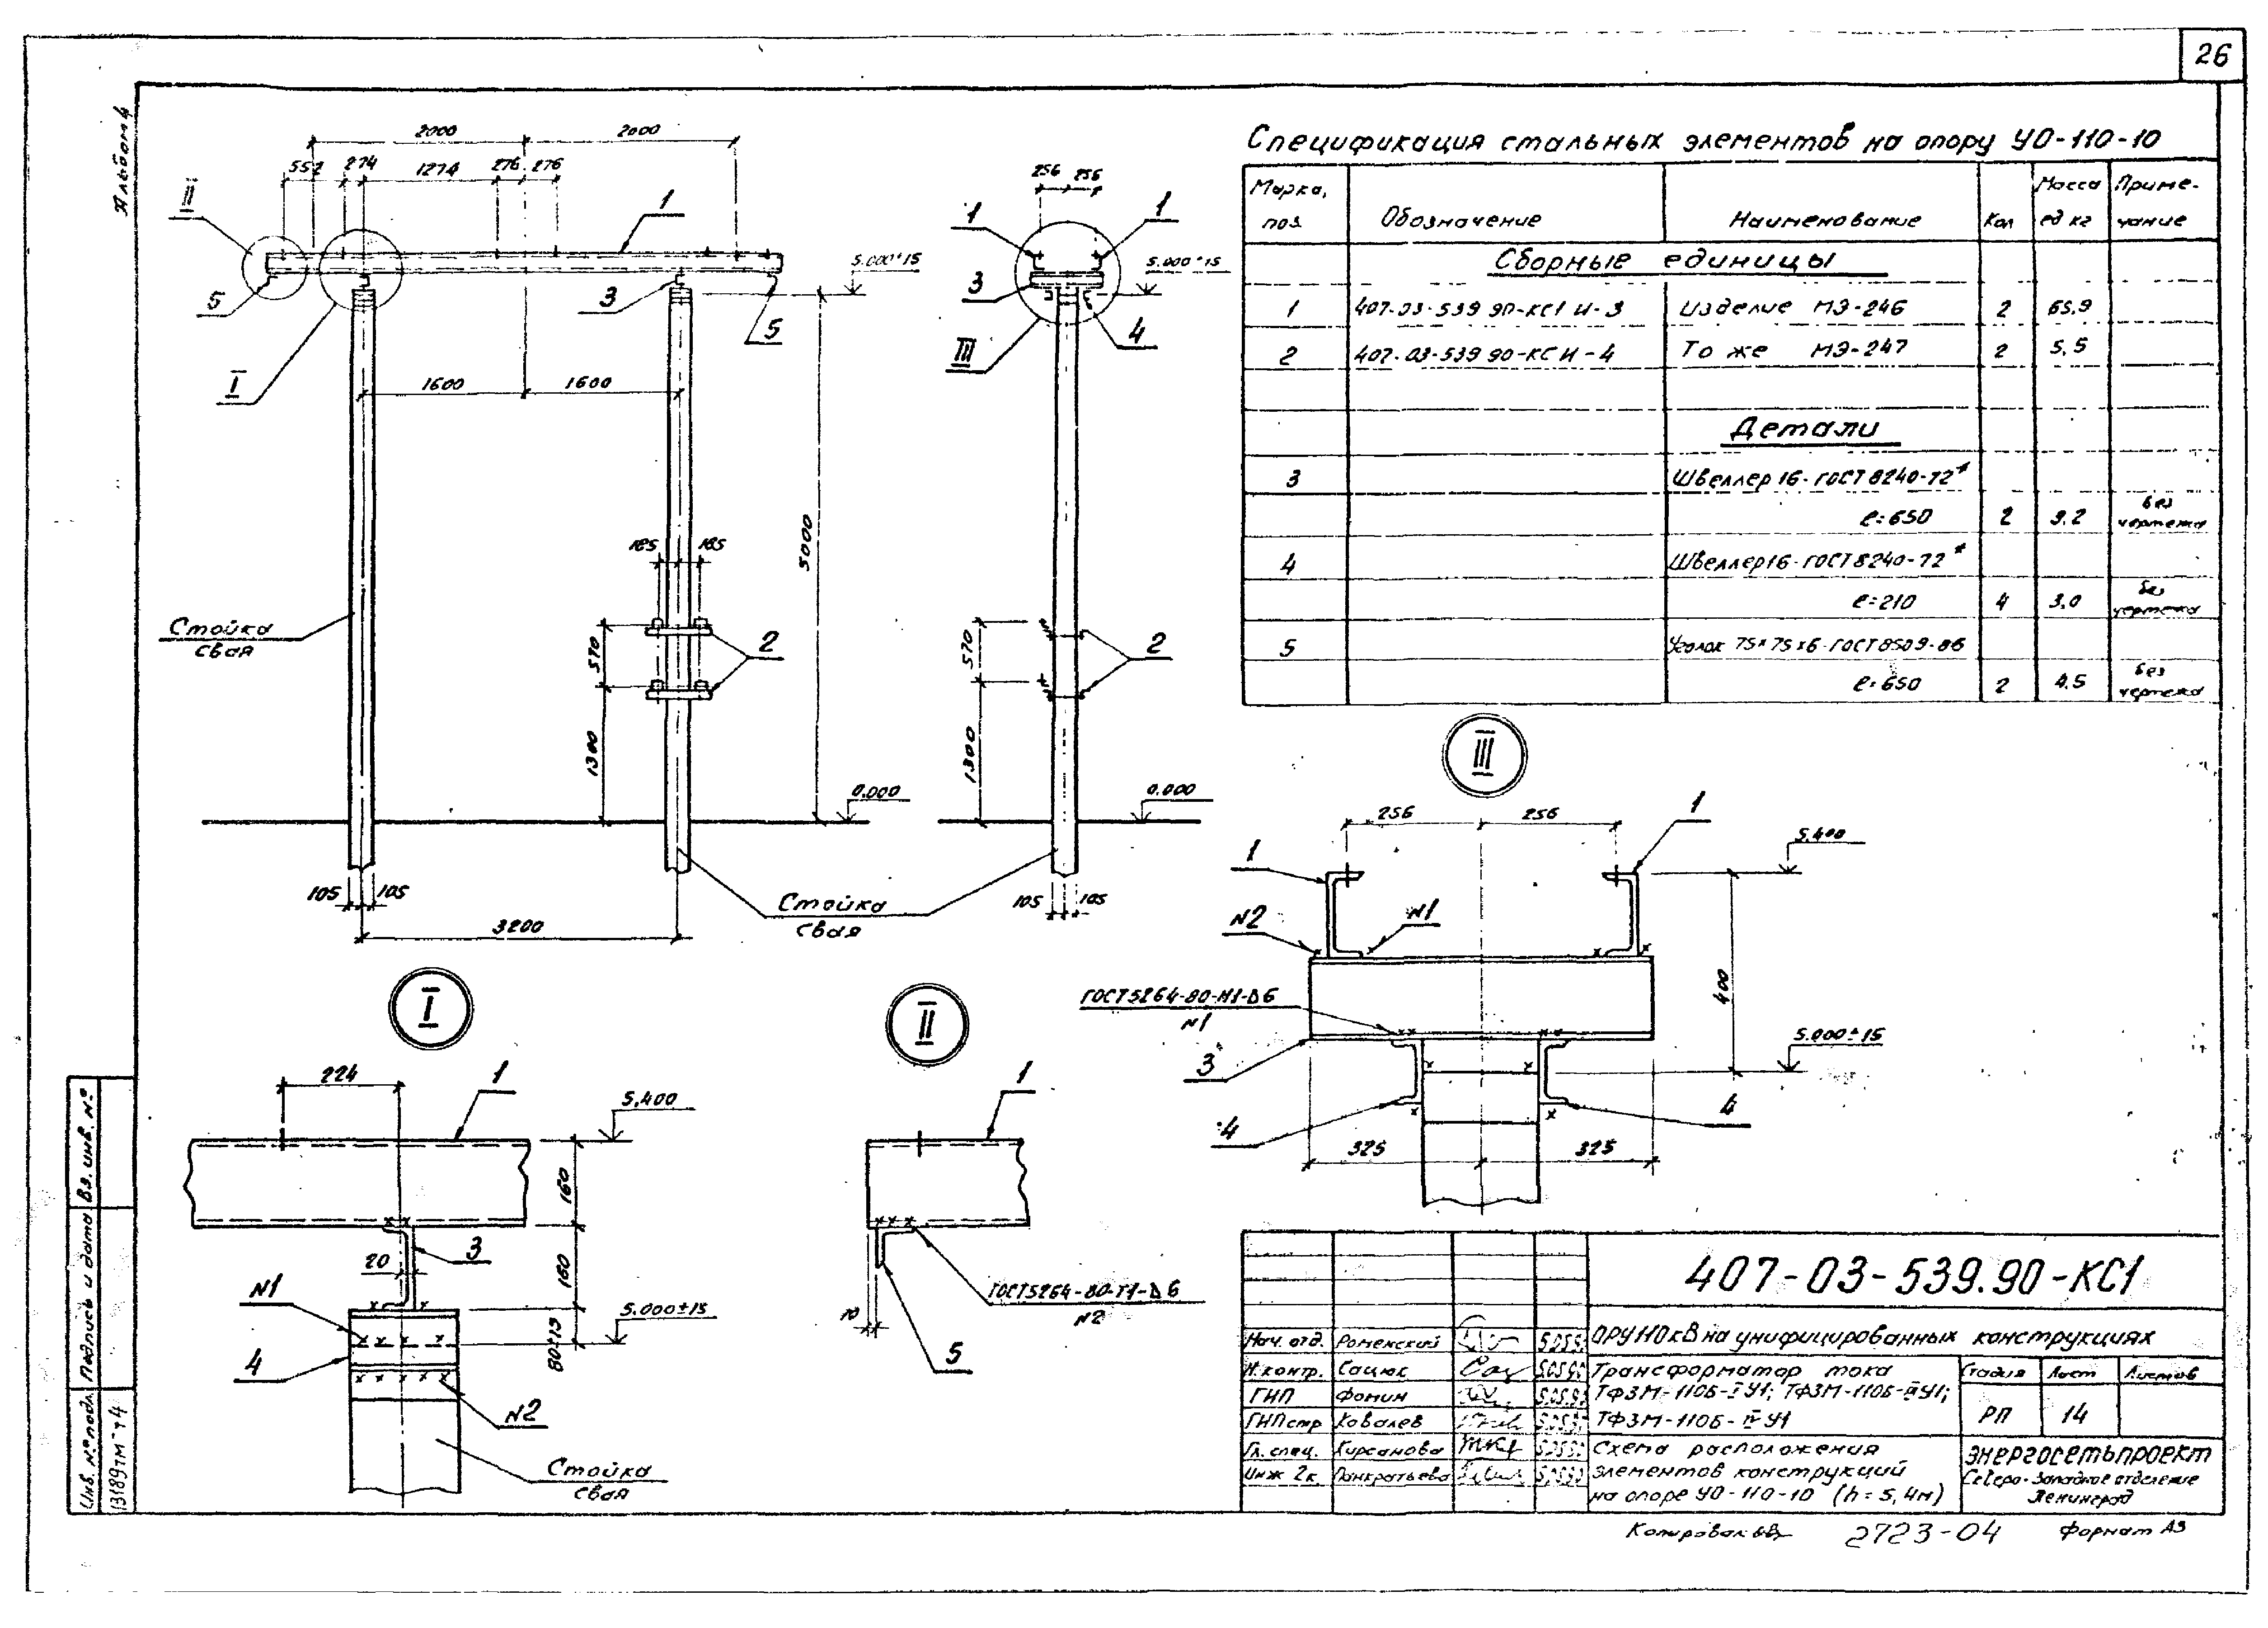 26
Альбом 4
2000 2000
552 274 1274 276 276
II
1
5
I
3
5
5.000±15
1600 1600
5000
185 185
570
1300
2
Стойка
свая
0.000
105 105
3200
Стойка
свая
256 256
1 1
3
III
4
5.000±15
570
1300
2
0.000
105 105
Спецификация стальных элементов на опору УО-110-10
Марка, поз. Обозначение Наименование Кол Масса ед кг Примечание
Сборные единицы
1 407-03-539 90-КС1 И-3 Изделие МЭ-246 2 65,9
2 407-03-539 90-КС И-4 То же МЭ-247 2 5,5
Детали
3 Швеллер 16-ГОСТ 8240-72*
ℓ=650 2 9.2 без чертежа
4 Швеллер 16-ГОСТ 8240-72*
ℓ=210 4 3,0 без чертежа
5 Уголок 75×75×6-ГОСТ 8509-86
ℓ=650 2 4.5 без чертежа
III
256 256
1 1
5,400
N2 N1
400
ГОСТ 5264-80-Н1-Δ6
N1
3
5.000±15
4 4
325 325
I
224
1
5,400
160
3
20
160
N1
5.000±15
80±15
4
N2
Стойка
свая
II
1
ГОСТ 5264-80-Т1-Δ6
N2
10
5
407-03-539.90-КС1
ОРУ 110 кВ на унифицированных конструкциях
Нач. отд. Роменский
Н.контр. Сацюк
ГИП Фомин
ГИП стр Ковалев
Гл. спец. Кирсанова
Инж 2к. Панкратьева
Трансформатор тока
ТФЗМ-110Б-I У1; ТФЗМ-110Б-III У1;
ТФЗМ-110Б-IV У1
Стадия Лист Листов
РП 14
Схема расположения
элементов конструкций
на опоре УО-110-10 (h=5,4м)
ЭНЕРГОСЕТЬПРОЕКТ
Северо-Западное отделение
Ленинград
Инв. № подл. Подпись и дата Вз. инв. №
13189тм-т4
Копировал
2723-04
Формат А3